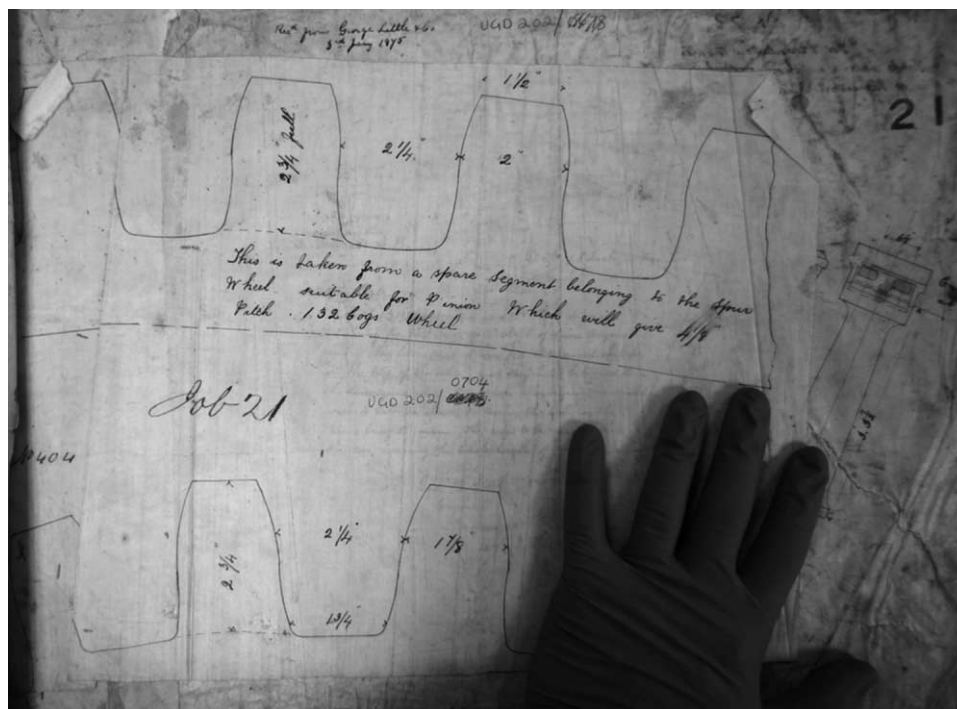 Rec'd from George Little & Co.
3rd Jany 1875
UGD 202/
21
1 1/2"
2 3/4" full
2 1/4"
2"
This is taken from a spare Segment belonging to the Spur
Wheel suitable for Pinion Which will give 4 1/8
Pitch . 132 Cogs Wheel
Job 21
0704
UGD 202/
No 404
2 1/4"
1 7/8"
2 3/4"
1 3/4"